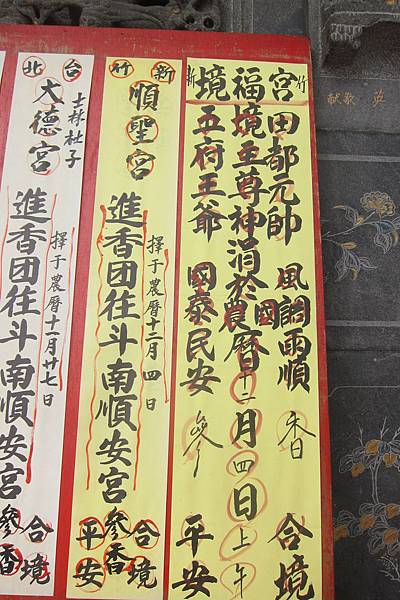 新境福宮竹
田都元帥 風調雨順 香 合境
境主尊神涓於農曆十二月四日上午
五府王爺 國泰民安 參 平安
新竹
順聖宮
擇于農曆十二月四日
進香团往斗南順安宮
參香
合境
平安
台北
士林社子
大德宮
擇于農曆十一月廿七日
進香团往斗南順安宮
參香
合境
英 敬献